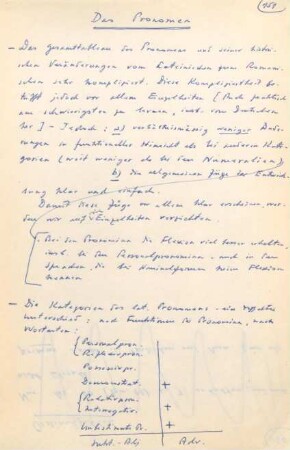 151
Das Pronomen
— Das Gesamtproblem des Pronomens und seiner historischen Veränderungen vom Lateinischen zum Romanischen sehr kompliziert. Diese Kompliziertheit betrifft jedoch vor allem Einzelheiten [Auch praktisch am schwierigsten zu lernen,
] — Jedoch: a) verhältnismässig weniger
in funktioneller Hinsicht als bei anderen
(weit weniger als bei den Numeralien)
b) die allgemeinen Züge der Entwicklung klar und einfach.
Damit diese Züge vor allem klar erscheinen, werden wir auf Einzelheiten verzichten.
Bei den Pronomina die Flexion viel besser erhalten,
bei den Personalpronomina, und in den
Sprachen, die bei Nominalformen keine Flexion
kennen
— Die Kategorien des lat. Pronomens — ein
Unterschied: nach Funktionen der Pronomina, nach
Wortarten:
Personalpron.
Reflexivpron.
Possessivpr.
Demonstrat. +
Relativpron.
Interrogativ. +
Indefinite Pr. +
Subst. - Adj. Adv.